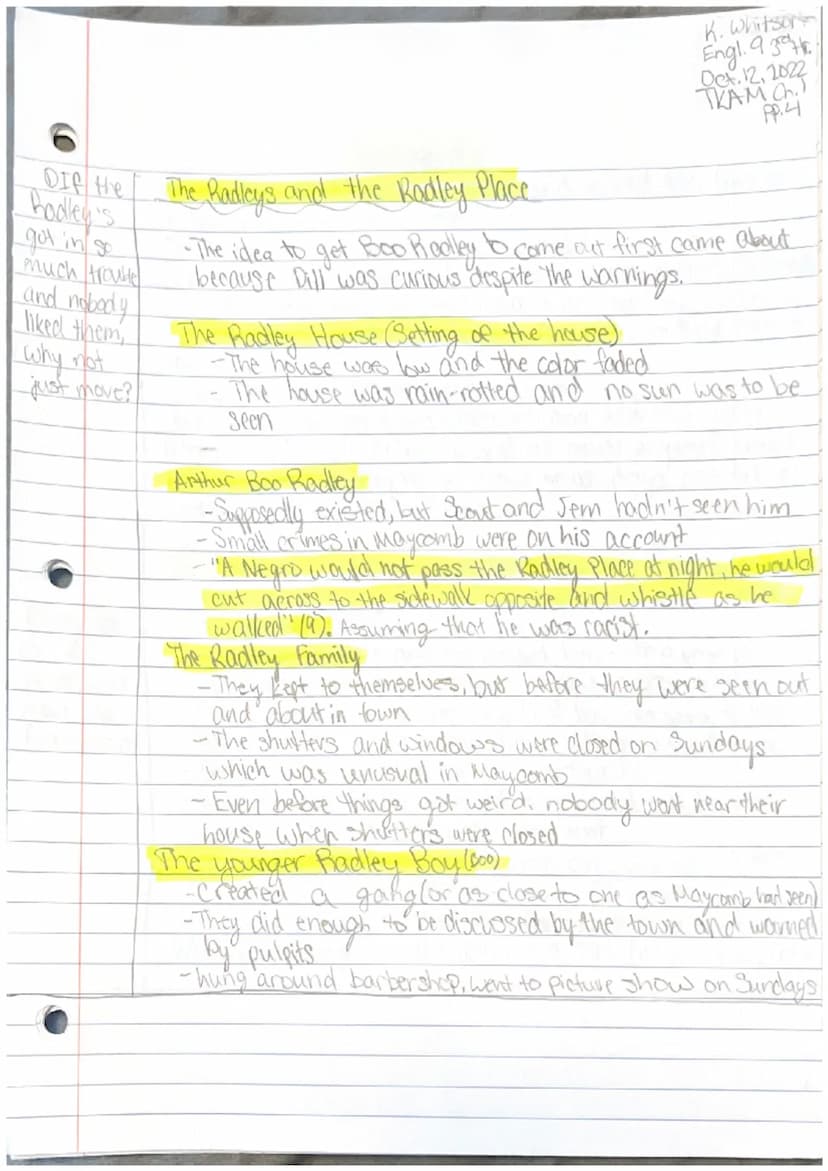 K. Whitson
Engl. 9 3rd Hr.
Oct. 12, 2022
TKAM Ch. 1
pp. 4
① If the
Radley's
got in so
much trouble
and nobody
liked them,
why not
just move?
The Radleys and the Radley Place
- The idea to get Boo Radley to come out first came about
because Dill was curious despite the warnings.
The Radley House (Setting of the house)
- The house was low and the color faded
- The house was rain-rotted and no sun was to be
seen
Arthur Boo Radley
- Supposedly existed, but Scout and Jem hadn't seen him
- Small crimes in Maycomb were on his account
- "A Negro would not pass the Radley Place at night, he would
cut across to the sidewalk opposite and whistle as he
walked" (9). Assuming that he was racist.
The Radley Family
- They kept to themselves, but before they were seen out
and about in town
- The shutters and windows were closed on Sundays
which was unusual in Maycomb
- Even before things got weird, nobody went near their
house when shutters were closed
The younger Radley Boy (Boo)
- Created a gang (or as close to one as Maycomb had seen)
- They did enough to be discussed by the town and warned
by pulpits
- hung around barbershop, went to picture show on Sundays